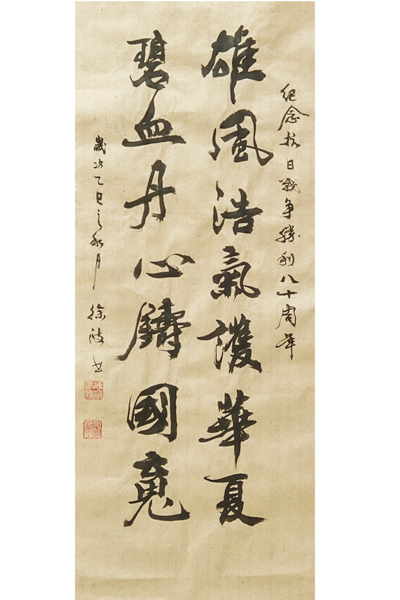 紀念抗日戰爭勝利八十周年
雄風浩氣護華夏
碧血丹心鑄國魂
歲次乙巳之秋月 徐波书